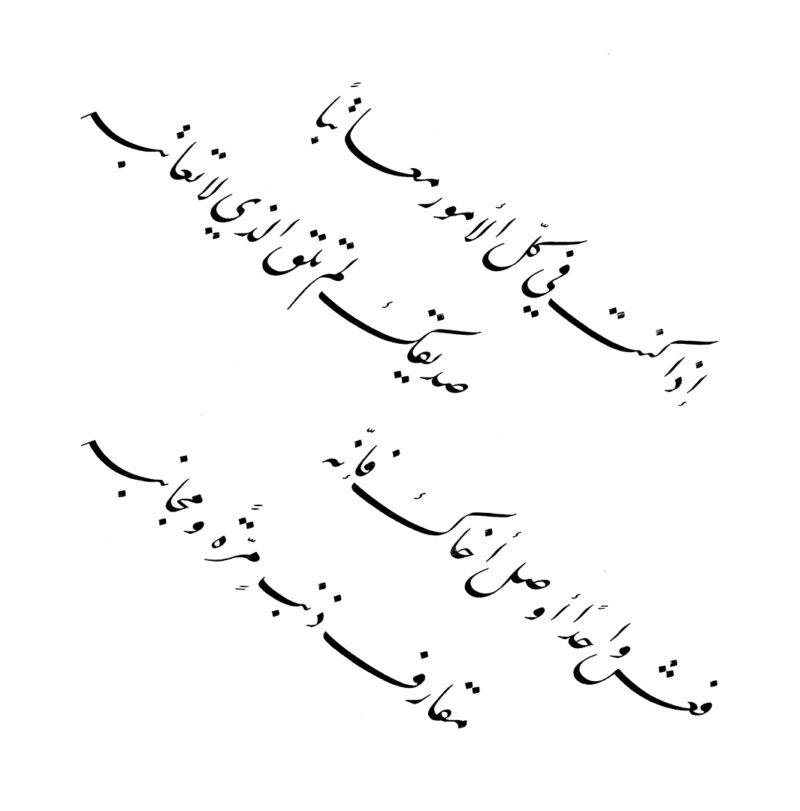 إذا كنت في كلّ الأمور معاتبًا
صديقك لم تلق الذي لا تعاتب
فعش واحدًا أو صل أخاك فإنّه
مقارف ذنبٍ مرّةً ومجانب